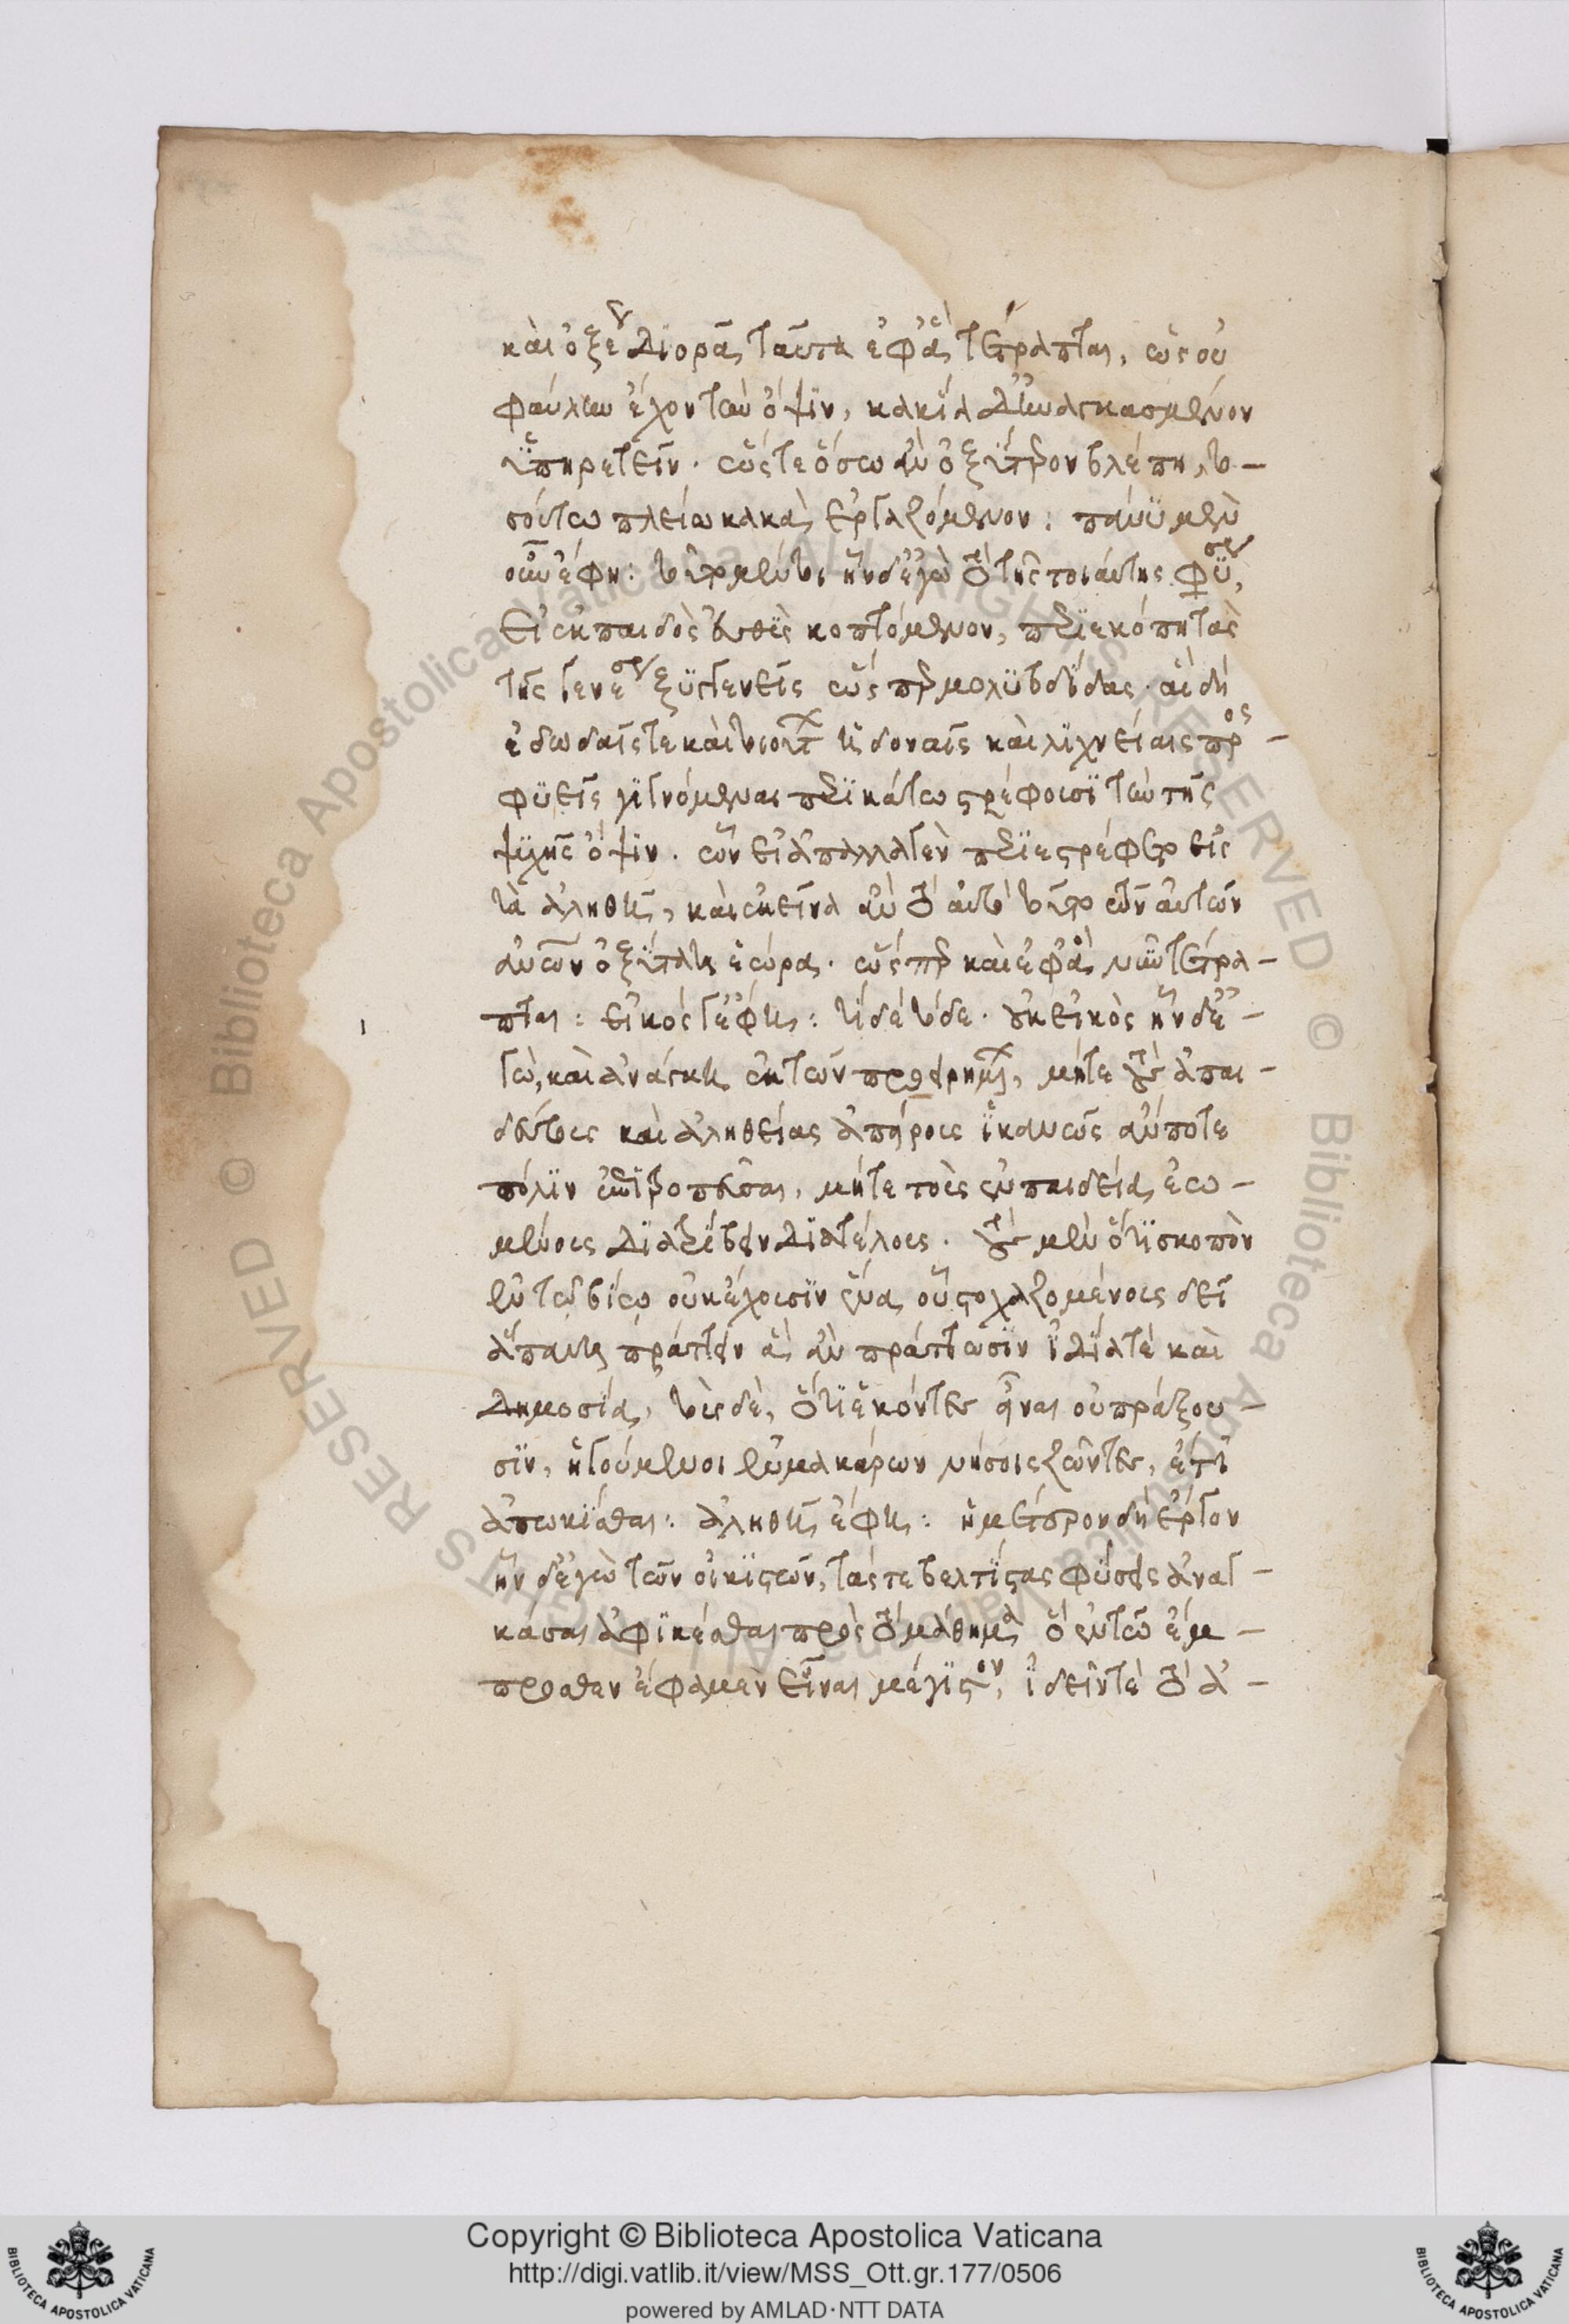 καὶ ὀξέως διορᾷ ταῦτα ἐφ' ἃ τέτραπται, ὡς οὐ
φαύλην ἔχον τὴν ὄψιν, κακία δ' ἠναγκασμένον
ὑπηρετεῖν. ὥστε ὅσω ἂν ὀξύτερον βλέπη, το-
σούτω πλείω κακὰ ἐργαζόμενον: πάνυ μὲν
οὖν ἔφη: τοῦτο μέντοι ἦν δ' ἐγὼ τὸ τῆς τοιαύτης φύσεως,
εἰ ἐκ παιδὸς εὐθὺς κοπτόμενον, περιεκόπη τὰς
τῆς γενέσεως ξυγγενεῖς ὥσπερ μολυβδίδας. αἳ δὴ
ἐδωδαῖς τε καὶ τοιούτων ἡδοναῖς καὶ λιχνείαις προσ-
φυεῖς γιγνόμεναι περὶ κάτω στρέφουσι τὴν τῆς
ψυχῆς ὄψιν. ὧν εἰ ἀπαλλαγὲν περιεστρέφετο εἰς
τὰ ἀληθῆ, καὶ ἐκεῖνα ἂν τὸ αὐτὸ τοῦτο τῶν αὐτῶν
ἀνων ὀξύτατα ἑώρα. ὥσπερ καὶ ἐφ' ἃ νῦν τέτρα-
πται: εἰκός γ' ἔφη: τί δὲ τόδε. οὐκ εἰκὸς ἦν δ' ἐ-
γώ, καὶ ἀνάγκη ἐκ τῶν προειρημένων, μήτε τοὺς ἀπαι-
δεύτους καὶ ἀληθείας ἀπείρους ἱκανῶς ἄν ποτε
πόλιν ἐπιτροπεῦσαι, μήτε τοὺς ἐν παιδεία ἐω-
μένους διατρίβειν διὰ τέλους. τοὺς μὲν ὅτι σκοπὸν
ἐν τῷ βίῳ οὐκ ἔχουσιν ἕνα, οὗ στοχαζομένους δεῖ
ἅπαντα πράττειν ἃ ἂν πράττωσιν ἰδία τὲ καὶ
δημοσία, τοὺς δὲ, ὅτι ἑκόντες εἶναι οὐ πράξου-
σιν, ἡγούμενοι ἐν μακάρων νήσοις ζῶντες, ἔτι
ἀπωκίσθαι: ἀληθῆ ἔφη: ἡμέτερον δὴ ἔργον
ἦν δ' ἐγὼ τῶν οἰκιστῶν, τάς τε βελτίστας φύσεις ἀναγ-
κάσαι ἀφικέσθαι πρὸς τὸ μάθημα ὃ ἐν τῷ ἔμ-
προσθεν ἔφαμεν εἶναι μέγιστον, ἰδεῖν τὲ τὸ ἀ-
Copyright © Biblioteca Apostolica Vaticana
http://digi.vatlib.it/view/MSS_Ott.gr.177/0506
powered by AMLAD·NTT DATA